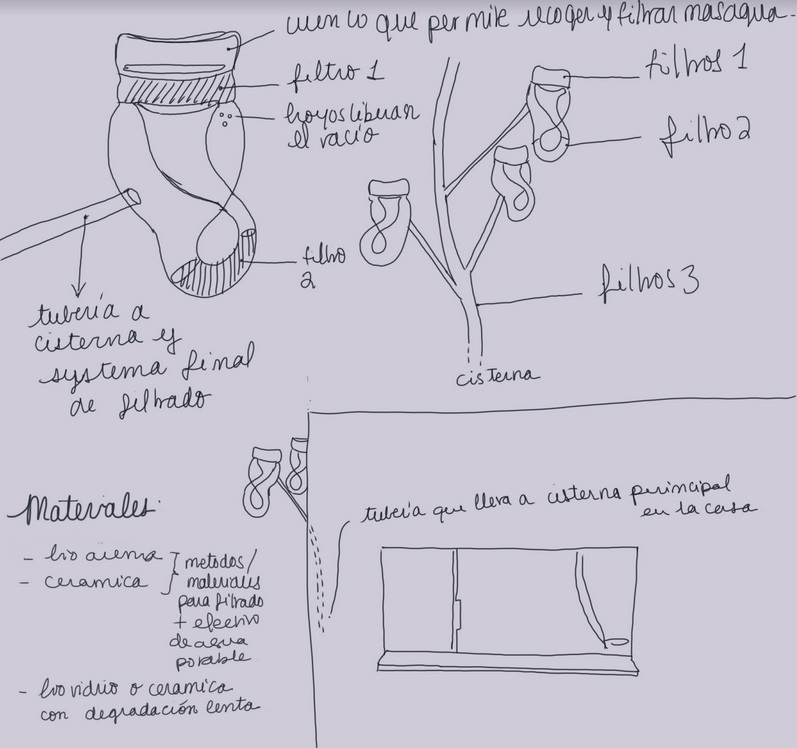 cuenco que permite recoger y filtrar mas agua.
filtro 1
hoyos liberan
el vacío
filtro
2
tubería a
cisterna y
systema final
de filtrado
filtros 1
filtro 2
filtros 3
cisterna
Materiales:
- bio arena
- ceramica
metodos/
materiales
para filtrado
+ efectivo
de agua
potable
- bio vidrio o ceramica
con degradación lenta
tubería que lleva a cisterna principal
en la casa